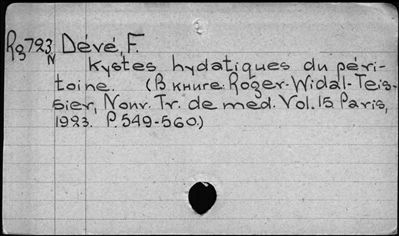 Rg723 Dévé, F.
N
Kystes hydatiques du péri-
toine. (В книге: Roger-Widal-Teis-
sier, Nouv. Tr. de med. Vol.15 Paris,
1923. P.549-560.)